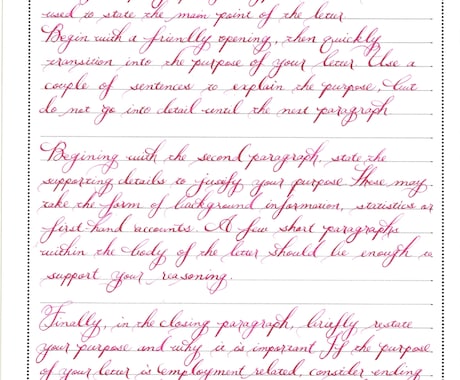 used to state the main point of the letter
Begin with a friendly opening, then quickly
transition into the purpose of your letter Use a
couple of sentences to explain the purpose, but
do not go into detail until the next paragraph
Begining with the second paragraph, state the
supporting details to justify your purpose These may
take the form of background information, statistics or
first-hand accounts. A few short paragraphs
within the body of the letter should be enough to
support your reasoning.
Finally, in the closing paragraph, briefly restate
your purpose and why it is important If the purpose
of your letter is employment related, consider ending